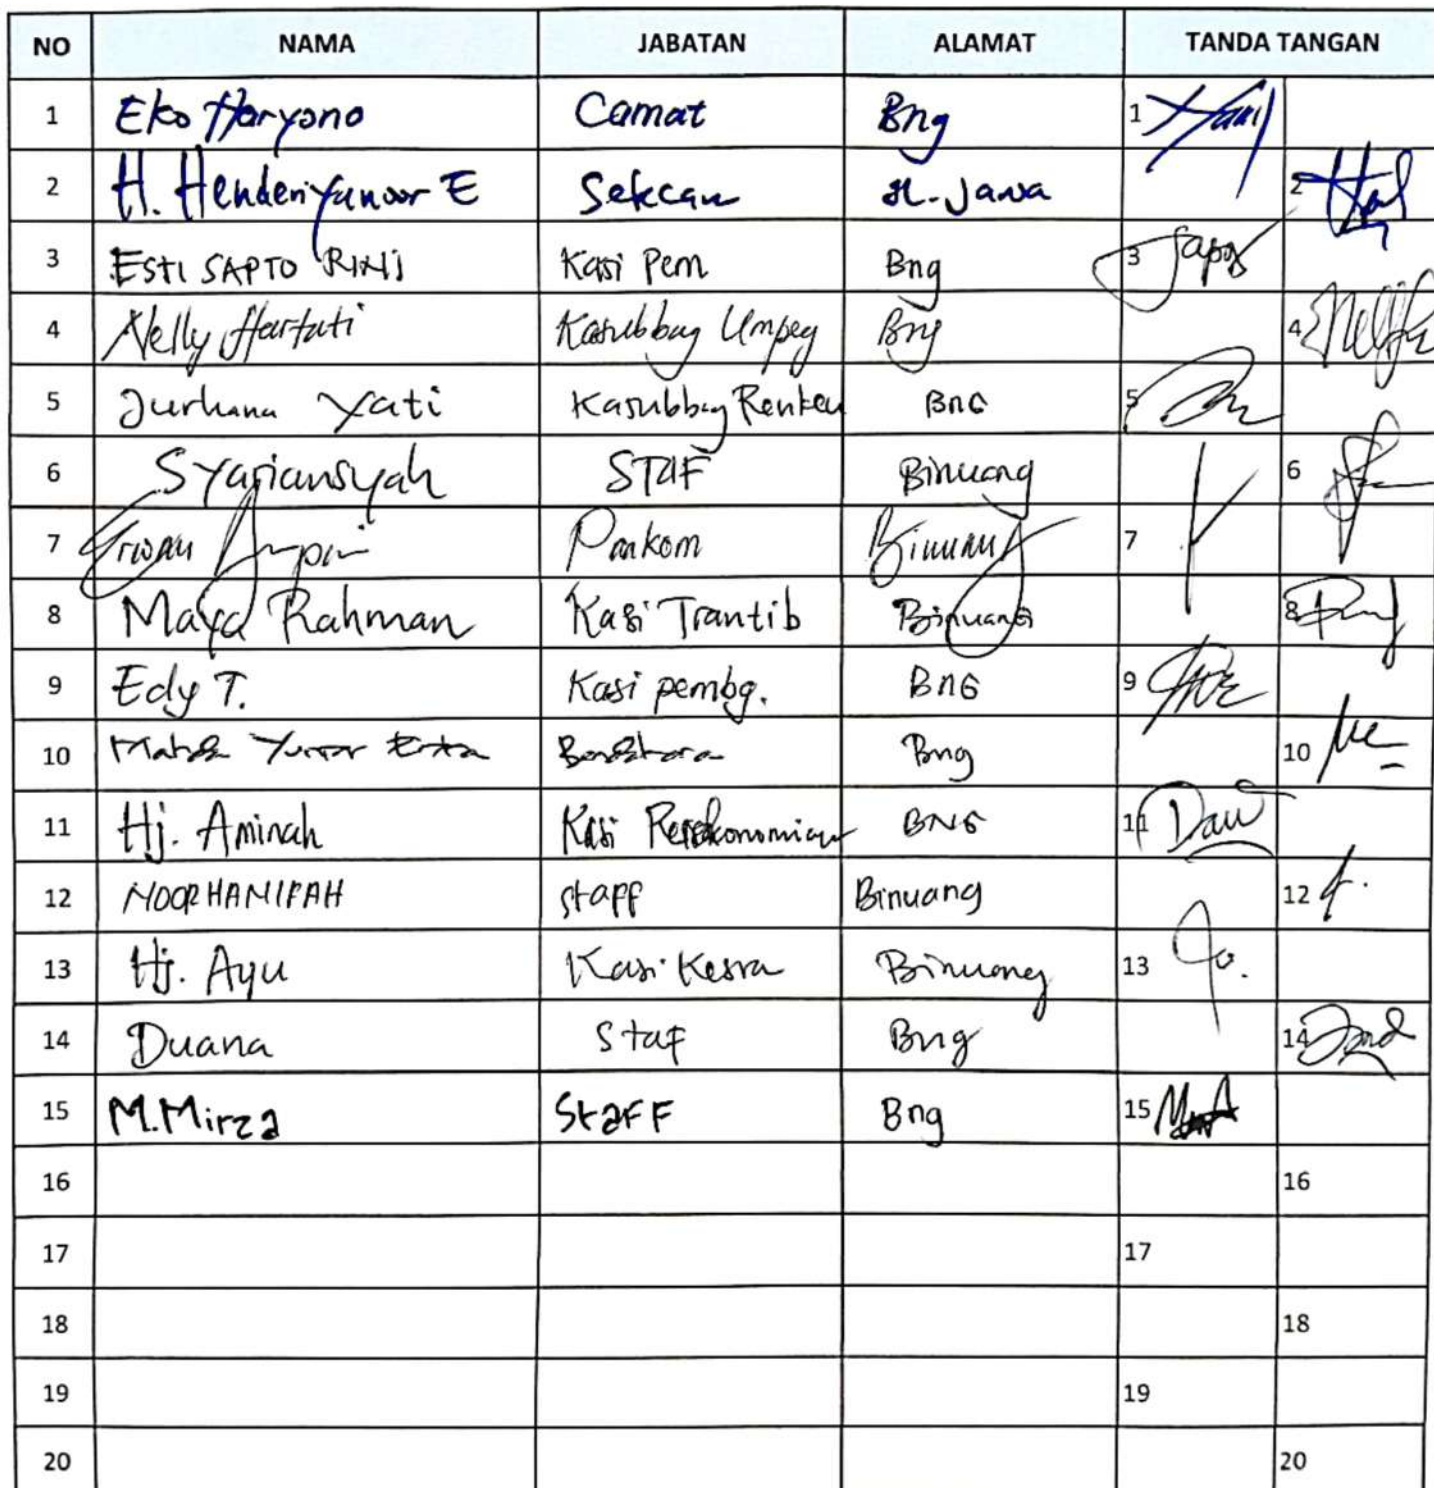 NO NAMA JABATAN ALAMAT TANDA TANGAN
1 Eko Haryono Camat Bng 1
2 H. Henderiyanoor E Sekcam Jl. Jawa 2
3 ESTI SAPTO RINI Kasi Pem Bng 3
4 Nelly Hartati Kasubbag Umpeg Bng 4
5 Jurhana Yati Kasubbag Renkeu BNG 5
6 Syariansyah STAF Binuang 6
7 Irwan Binuang 7
8 Maya Rahman Kasi Trantib Binuang 8
9 Edy T. Kasi pembg. BNG 9
10 Bng 10
11 Hj. Aminah Kasi Perekonomian BNG 11
12 NOORHANIFAH staff Binuang 12
13 Hj. Ayu Kasi Kesra Binuang 13
14 Duana Staf Bng 14
15 M.Mirza StaFF Bng 15
16 16
17 17
18 18
19 19
20 20